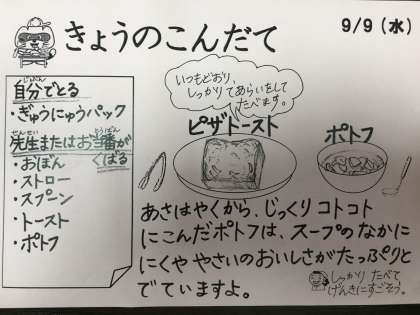 きょうのこんだて
9/9(水)
自分でとる
じぶん
・ぎゅうにゅうパック
先生またはお当番が
せんせい
とうばん
くばる
・おぼん
・ストロー
・スプーン
・トースト
・ポトフ
いつもどおり、
しっかりてあらいをして
たべます。
ピザトースト
ポトフ
あさはやくから、じっくりコトコト
にこんだポトフは、スープのなかに
にくややさいのおいしさがたっぷりと
でていますよ。
しっかりたべて
げんきにすごそう。